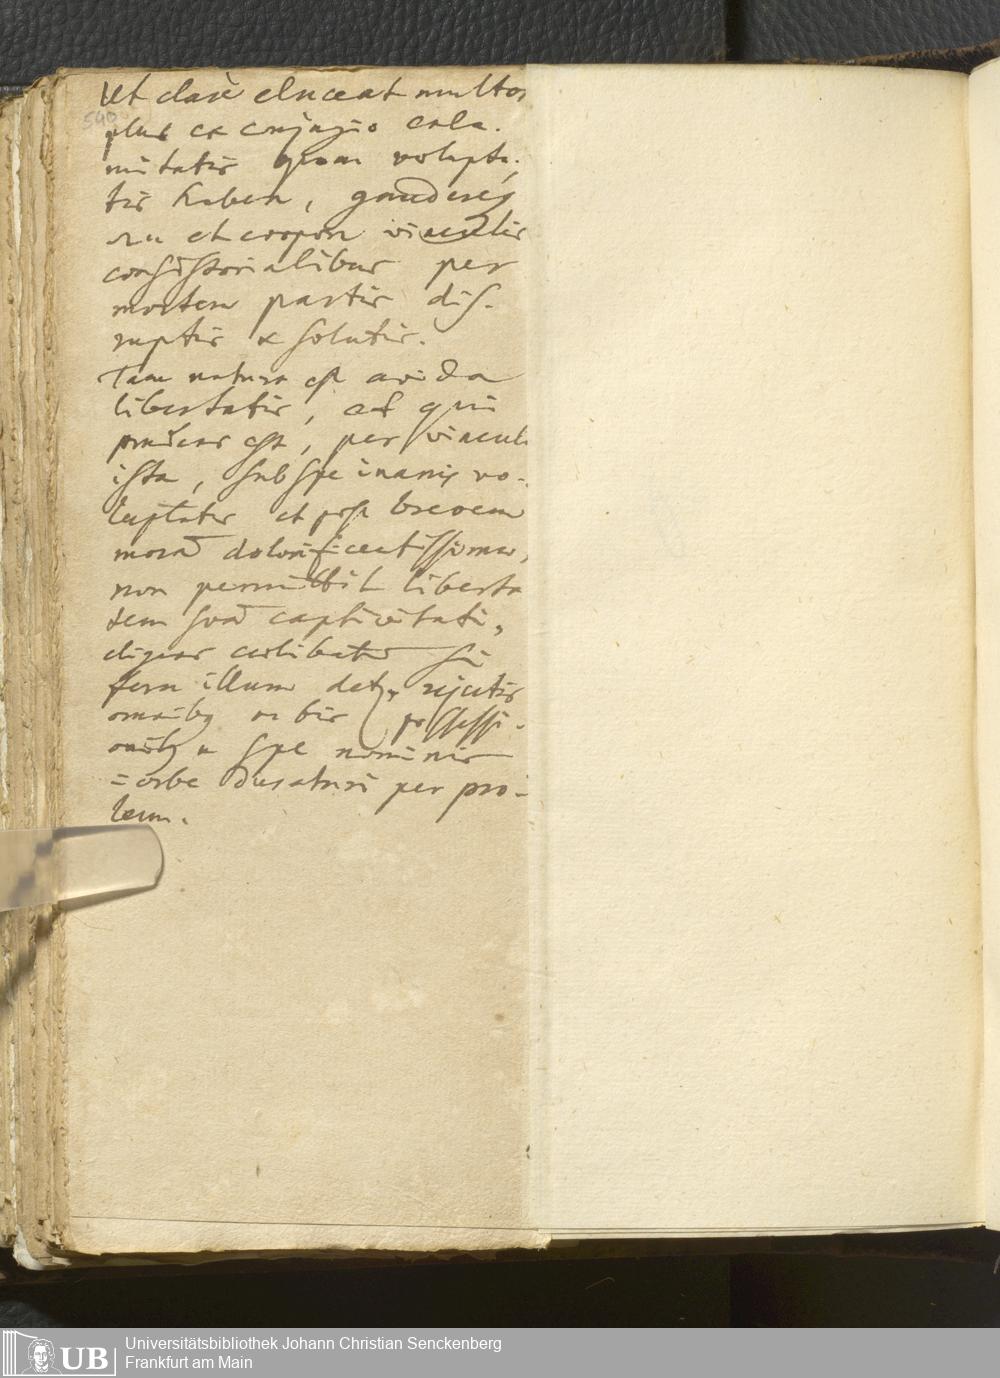 Ut clarè eluceat multos
540
plus ex conjugio cala-
mitatis quam volupta-
tis habere, gaudereq
eru et corpore vinculis
consistorialibus per
mortem partis dis-
ruptis & solutis.
Tam natura est avida
libertatis, ut qui
prudens est, per vincula
ista, sub spe inanis vo-
luptatis et post brevem
morā dolorificentissimae,
non permittit liberta
tem suā captivitati,
eligens coelibatum
illum rejectis
omnibq orbis possessi-
onibq & spe nominis
=orbe duraturi per pro-
lem.
Universitätsbibliothek Johann Christian Senckenberg
Frankfurt am Main
UB